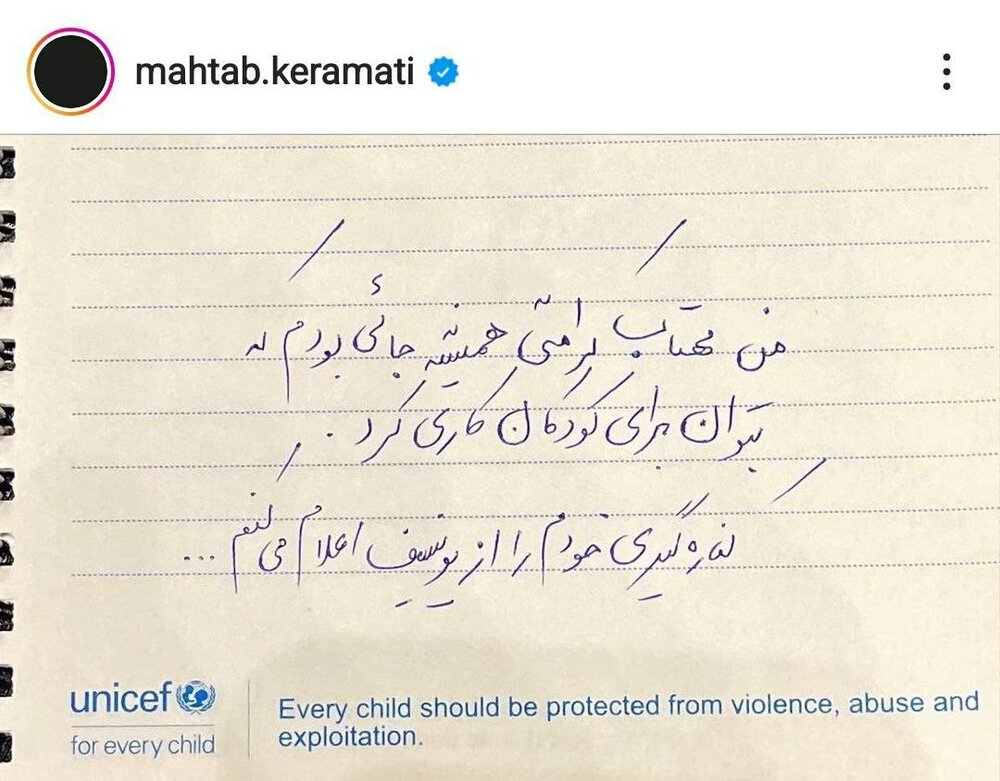 mahtab.keramati
من مهتاب کرامتی همیشه جائی بودم که
بتوان برای کودکان کاری کرد.
کناره‌گیری خودم را از یونیسف اعلام می‌کنم ...
unicef
for every child
Every child should be protected from violence, abuse and
exploitation.